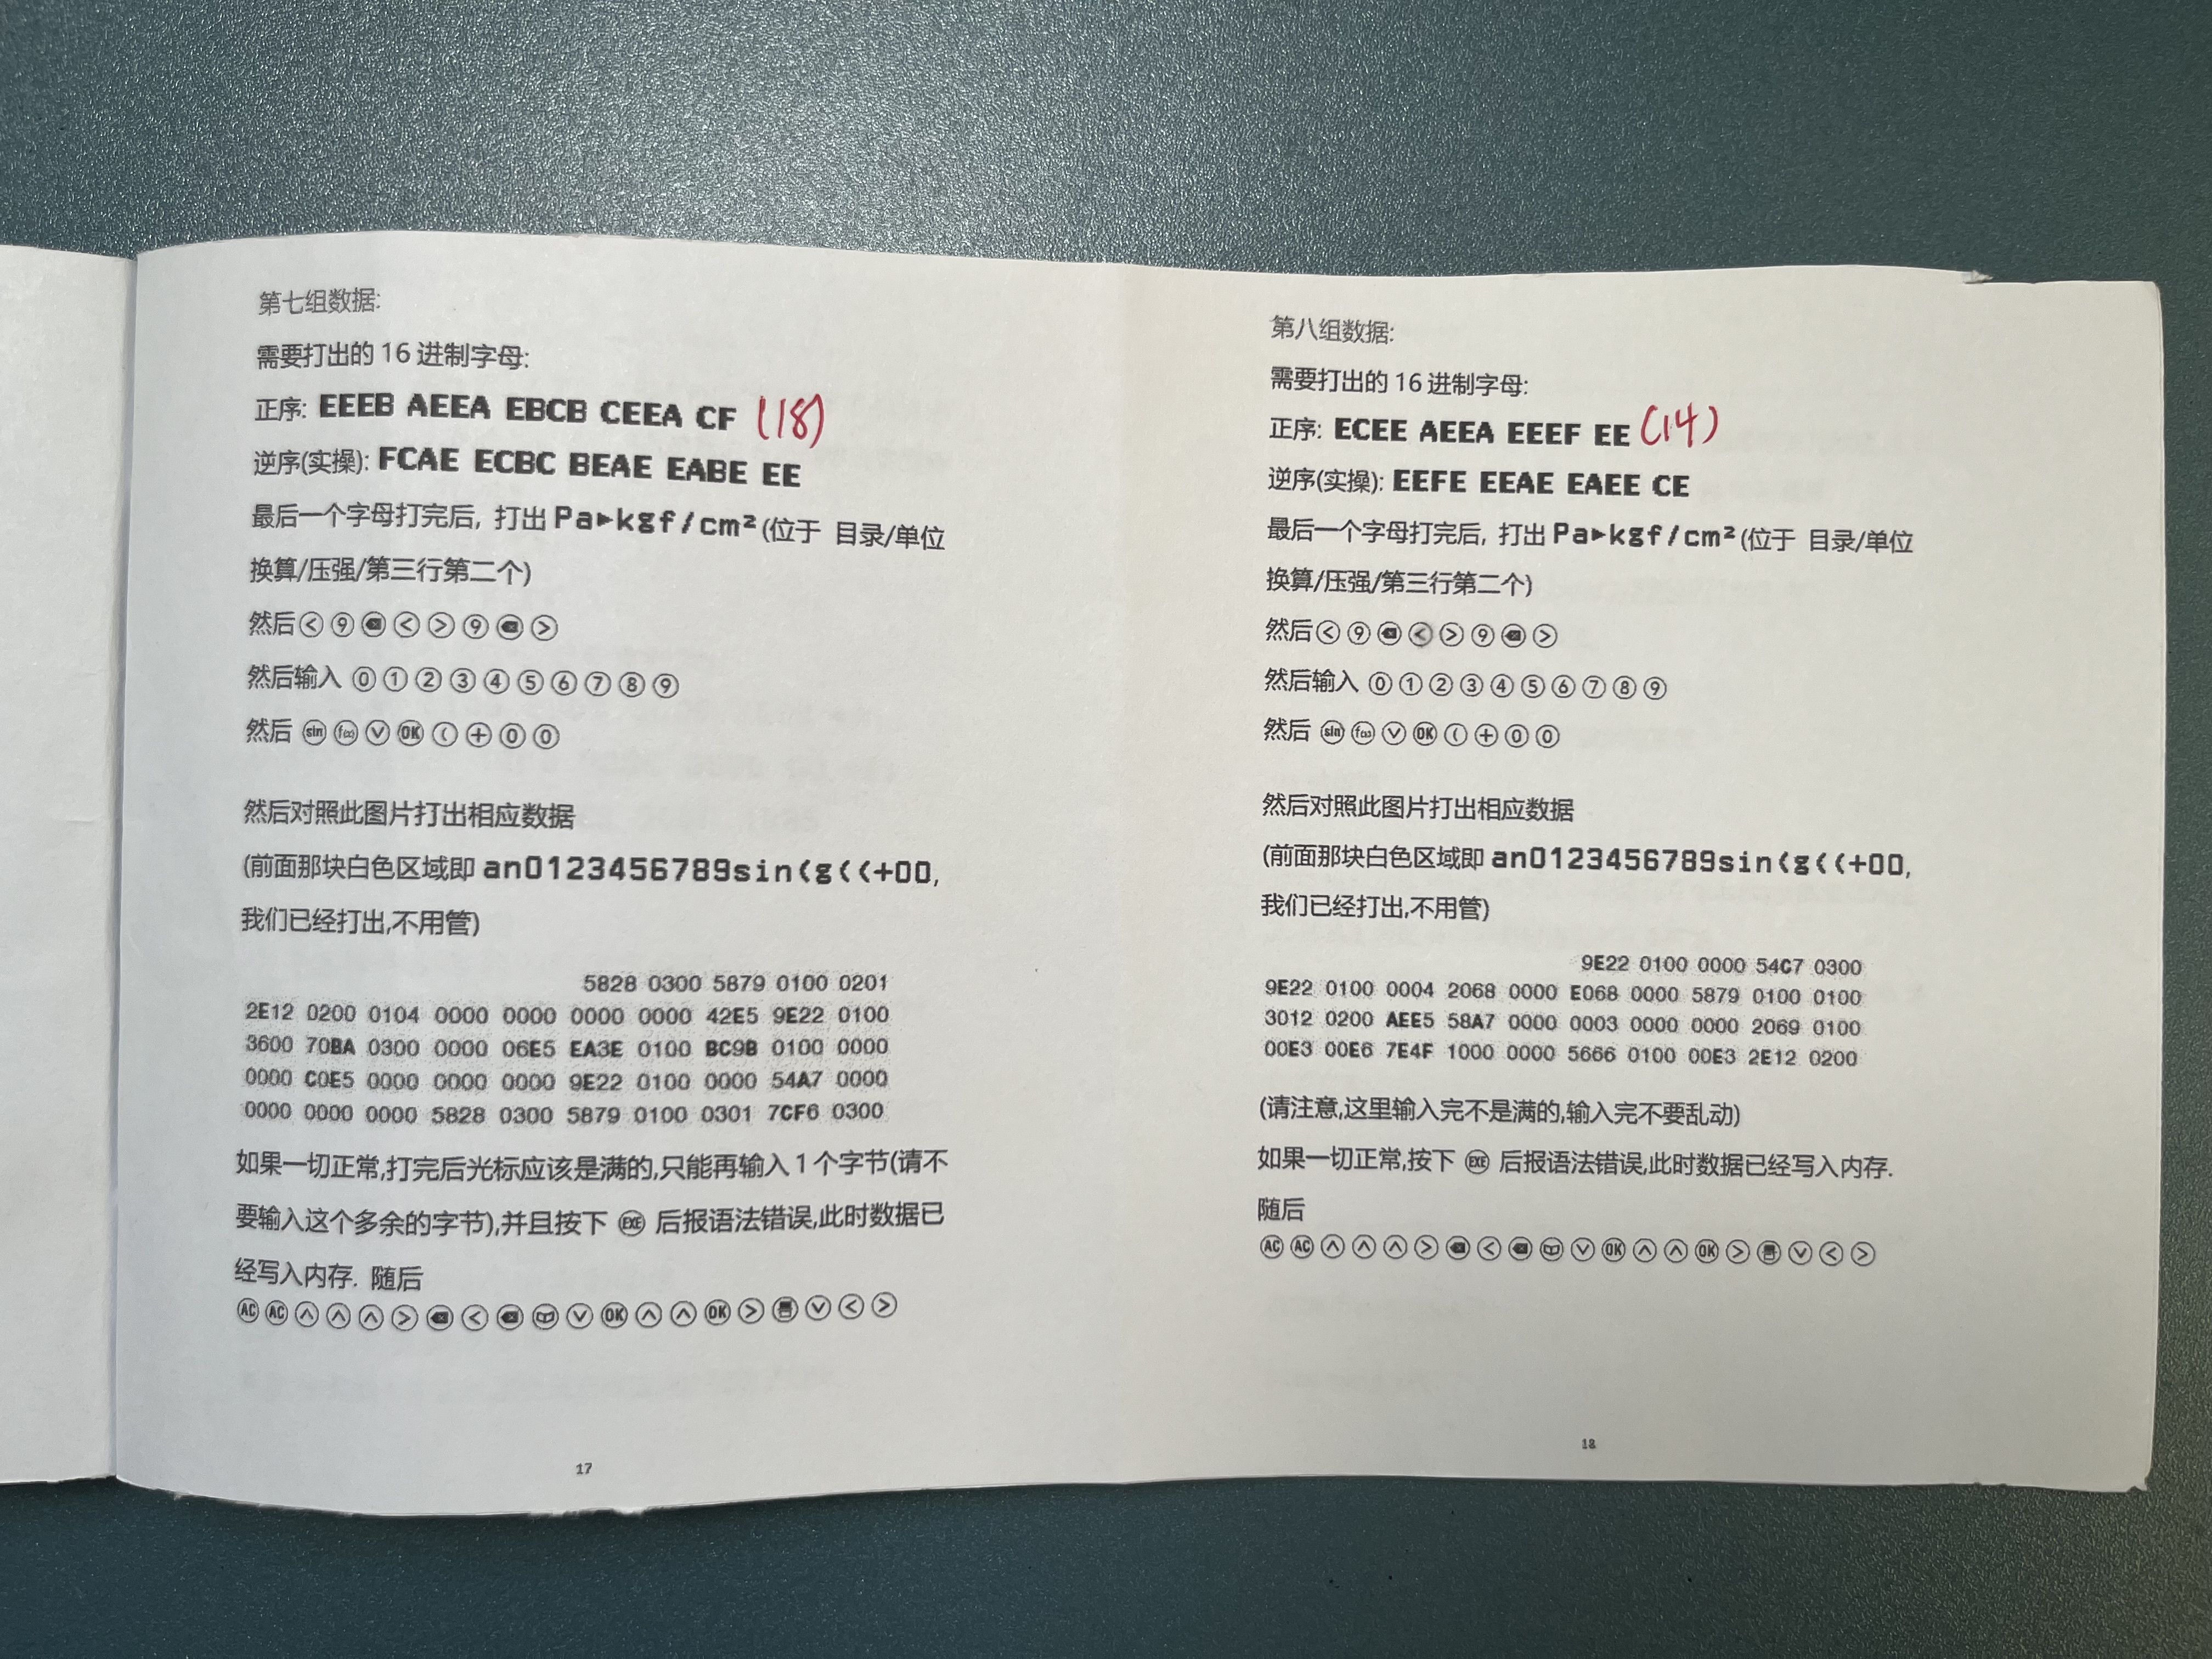 第七组数据:
需要打出的 16 进制字母:
正序: EEEB AEEA EBCB CEEA CF (18)
逆序(实操): FCAE ECBC BEAE EABE EE
最后一个字母打完后, 打出 Pa▸kgf/cm²(位于 目录/单位
换算/压强/第三行第二个)
然后 < 9 ⌫ < > 9 ⌫ >
然后输入 0 1 2 3 4 5 6 7 8 9
然后 sin f(x) ∨ OK ( + 0 0
然后对照此图片打出相应数据
(前面那块白色区域即 an0123456789sin(g((+00,
我们已经打出,不用管)
5828 0300 5879 0100 0201
2E12 0200 0104 0000 0000 0000 0000 42E5 9E22 0100
3600 70BA 0300 0000 06E5 EA3E 0100 BC9B 0100 0000
0000 C0E5 0000 0000 0000 9E22 0100 0000 54A7 0000
0000 0000 0000 5828 0300 5879 0100 0301 7CF6 0300
如果一切正常,打完后光标应该是满的,只能再输入 1 个字节(请不
要输入这个多余的字节),并且按下 EXE 后报语法错误,此时数据已
经写入内存. 随后
AC AC ∧ ∧ ∧ > ⌫ < ⌫ ∨ OK ∧ ∧ OK > ∨ < >
17
第八组数据:
需要打出的 16 进制字母:
正序: ECEE AEEA EEEF EE (14)
逆序(实操): EEFE EEAE EAEE CE
最后一个字母打完后, 打出 Pa▸kgf/cm²(位于 目录/单位
换算/压强/第三行第二个)
然后 < 9 ⌫ < > 9 ⌫ >
然后输入 0 1 2 3 4 5 6 7 8 9
然后 sin f(x) ∨ OK ( + 0 0
然后对照此图片打出相应数据
(前面那块白色区域即 an0123456789sin(g((+00,
我们已经打出,不用管)
9E22 0100 0000 54C7 0300
9E22 0100 0004 2068 0000 E068 0000 5879 0100 0100
3012 0200 AEE5 58A7 0000 0003 0000 0000 2069 0100
00E3 00E6 7E4F 1000 0000 5666 0100 00E3 2E12 0200
(请注意,这里输入完不是满的,输入完不要乱动)
如果一切正常,按下 EXE 后报语法错误,此时数据已经写入内存.
随后
AC AC ∧ ∧ ∧ > ⌫ < ⌫ ∨ OK ∧ ∧ OK > ∨ < >
18